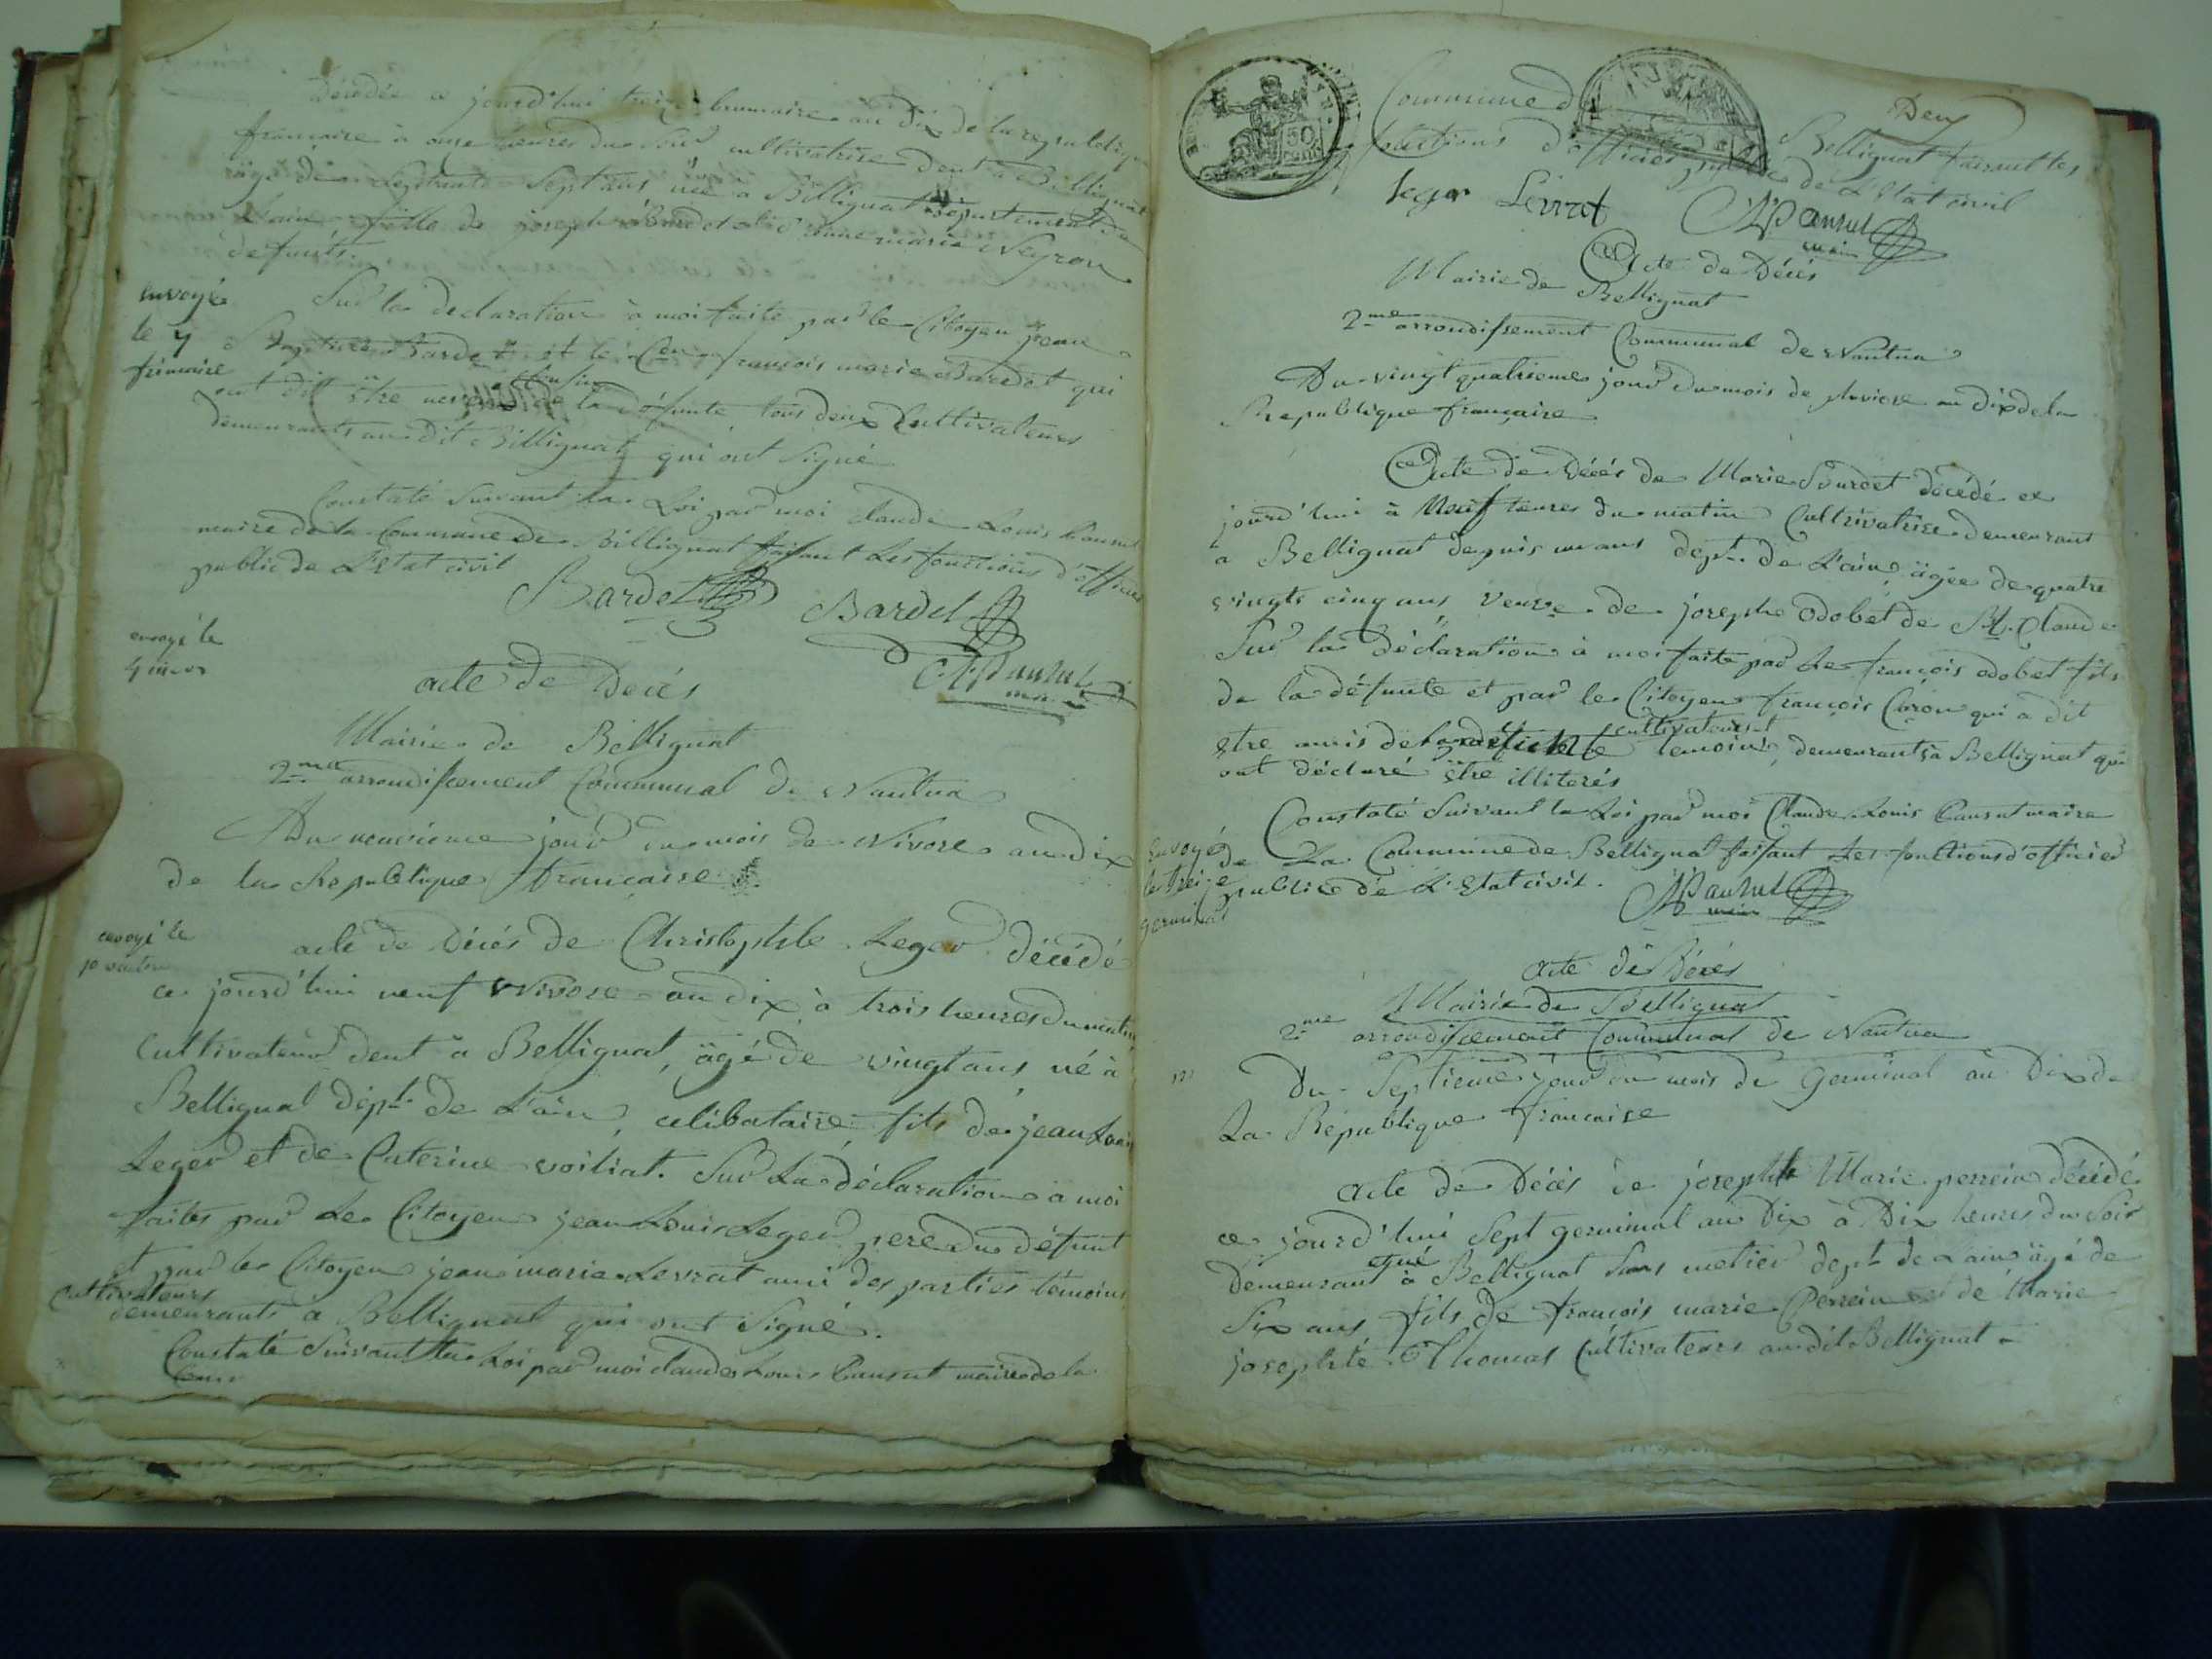 Décédée ce jourd'hui treize brumaire an dix de la republique
française à onze heures du soir cultivatrice demt à Bellignat
âgé de septante sept ans, née a Bellignat département de
L'ain, fille de joseph Bardet et d'anne marie Neyron
defunts.
envoyé
le 7
frimaire
Sur la declaration à moi faite par le Citoyen jean
Baptiste Bardet et le Cen françois marie Bardet qui
ont dit être neveu de la défunte, tous deux Cultivateurs
demeurants au dit Bellignat qui ont signé
Constaté suivant la Loi par moi Claude Louis Pansut
maire de la Commune de Bellignat faisant les fonctions d'officier
public de L'Etat civil
Bardet Bardet
envoyé le
Pansut
maire
acte de Décés
Mairie de Bellignat
2me arrondissement Communal de Nantua
Du neuvieme jour du mois de Nivose an dix
de la Republique française
envoyé le
acte de Décés de Christophle Leger décédé
ce jourd'hui neuf Nivose an dix à trois heures du matin
Cultivateur demt à Bellignat, âgé de vingt ans, né à
Bellignat dépt. de L'ain, celibataire fils de jean Louis
Leger et de Caterine voiliat. Sur La déclaration à moi
faites par Le Citoyen jean Louis Leger pere du défunt
et par le Citoyen jean marie Levrat ami des parties témoins
Cultivateurs
demeurants à Bellignat qui ont signé.
Constaté suivant la Loi par moi Claude Louis Pansut maire de la
Deux
50
Commune de Bellignat faisant les
fonctions d'officier public de L'Etat civil
leger Levrat Pansut
maire
Acte de Décés
Mairie de
Bellignat
2me arrondissement Communal de Nantua
Du vingt quatrieme jour du mois de pluviose an dix de la
Republique française
Acte de Décés de Marie Bourdet décédé ce
jourd'hui à Neuf heures du matin Cultivatrice demeurant
a Bellignat depuis un ans dept. de L'ain, âgée de quatre
vingts cinq ans, veuve de josephe odobet de St. Claude
Sur la déclaration à moi faite par Le françois odobet fils
de la défunte et par le Citoyen françois Caron qui a dit
cultivateurs
être amis de la défunte temoins, demeurants à Bellignat qui
ont déclaré être illiterés
Constaté suivant la Loi par moi Claude Louis Pansut maire
Envoyé
le treize
germinal
de La Commune de Bellignat faisant Les fonctions d'officier
public de L'Etat civil.
Pansut
maire
acte de Décés
Mairie de Bellignat
2me arrondissement Communal de Nantua
Du Septieme jour du mois de Germinal an Dix de
La République française
acte de Décés de josephte Marie perrein décédé
ce jourd'hui Sept germinal an Dix à Dix heures du soir
et né
Demeurant à Bellignat sans metier dept de L'ain âgé de
Six ans fils de françois marie Perrein et de Marie
josephté Thomas Cultivateurs au dit Bellignat